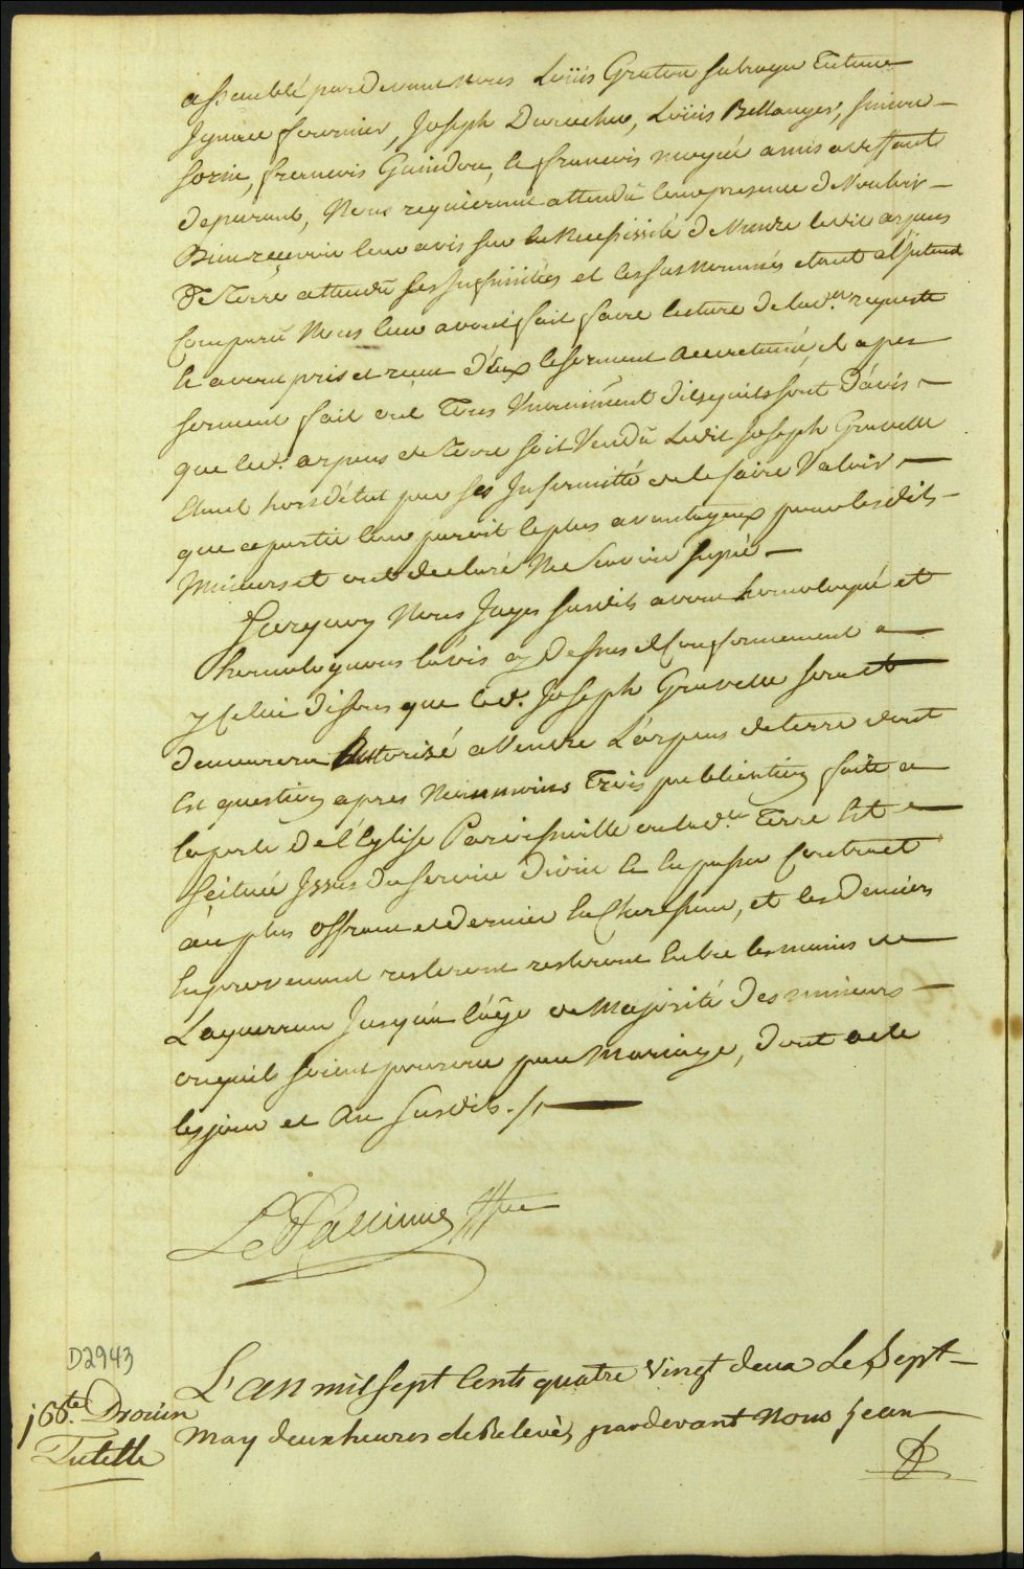 assemblé pardevant nous Loüis Graton subrogé tuteur
Ignace fournier, Joseph Durocher, Loüis Bellanger, simon
sorin, francois Guindon, le francois amis a deffaut
de parents, Nous requierant attendü leur presence de Vouloir
Bien recevoir leur avis sur la Necessité de Vendre ledit arpens
de Terre attendü ses Infirmitées et les susnommés etant a l'Instant
Comparü Nous leur avons fait faire lecture de lad. requeste
le avons pris et reçu d'Eux le serment accoutumé, et apres
serment fait ont Tous Unanimement dit quils sont d'avis
que led. arpens de Terre soit Vendü Ledit Joseph Gravelle
étant hors d'état par ses Infirmitté de le faire Valoir
que ce partie leur paroit le plus avantageux pour lesdits
Mineurs et ont declaré Ne savoir signé
Surquoy Nous Juges susdits avons homologué et
homologuons lavis cy dessus et Conformement a
yCelui disons que led. Joseph Gravelle sera et
demeurera Autorisé a Vendre L'arpens de terre dont
Est question apres Neanmoins Trois publication faite a
la porte de l'Eglise Paroissialle ou lad. Terre Est
seituée Issus du service divin le en passer Contract
au plus offrant et dernier Encherisseur, et les deniers
En provenant resteront resteront Entre les mains de
L'aquereur Jusqu'au l'âge de Majorité des mineurs
ou quils soient pourvue par Mariage, dont acte
les jour et An susdits ./.
LePallieur
D2943
L'an mil sept Cents quatre Vingt deux Le Sept
jos. Drouin
May deux heures de Relevée, pardevant Nous Jean
Tutelle